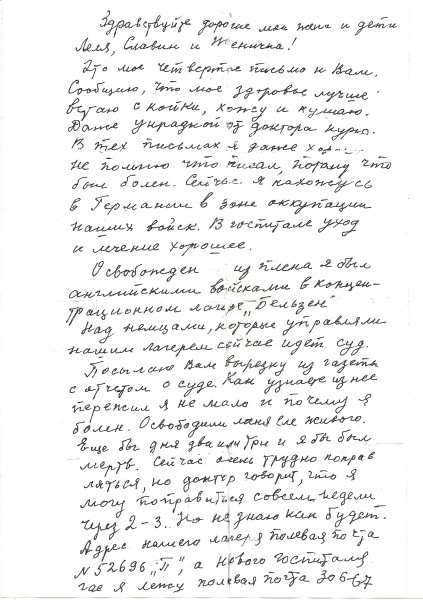 Здравствуйте дорогие мои жена и дети
Леля, Славик и Женичка!
Это мое четвертое письмо к Вам.
Сообщаю, что мое здоровье лучше
встаю с койки, хожу и кушаю.
Даже украдкой от доктора курю.
В тех письмах я даже
не помню что писал, потому что
был болен. Сейчас я нахожусь
в Германии в зоне оккупации
наших войск. В госпитале уход
и лечение хорошее.
Освобожден из плена я был
английскими войсками в концен-
трационном лагере „Бельзен"
Над немцами, которые управляли
нашим лагерем сейчас идет суд.
Посылаю Вам вырезку из газеты
с отчетом о суде. Как узнаете из нее
пережил я не мало и почему я
болен. Освободили меня еле живого.
Еще бы дня два или три и я бы был
мертв. Сейчас очень трудно поправ
ляться, но доктор говорит, что я
могу поправиться совсем недели
через 2-3. Но не знаю как будет.
Адрес нашего лагеря полевая почта
N 52696 „П", а нового госпиталя
где я лежу полевая почта 30667